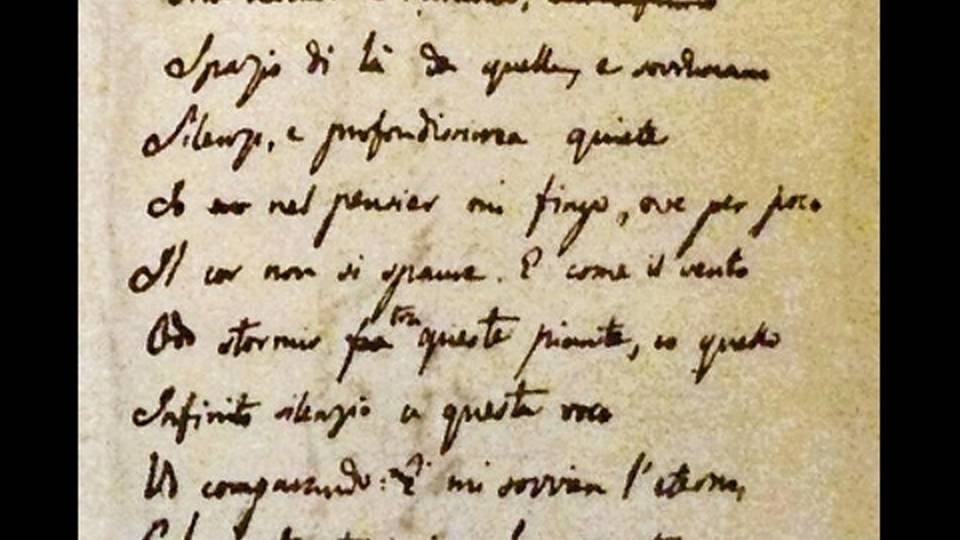 Spazio di là da quella, e sovrumani
Silenzi, e profondissima quiete
Io nel pensier mi fingo, ove per poco
Il cor non si spaura. E come il vento
Odo stormir tra queste piante, io quello
Infinito silenzio a questa voce
Vo comparando: E mi sovvien l'eterno,